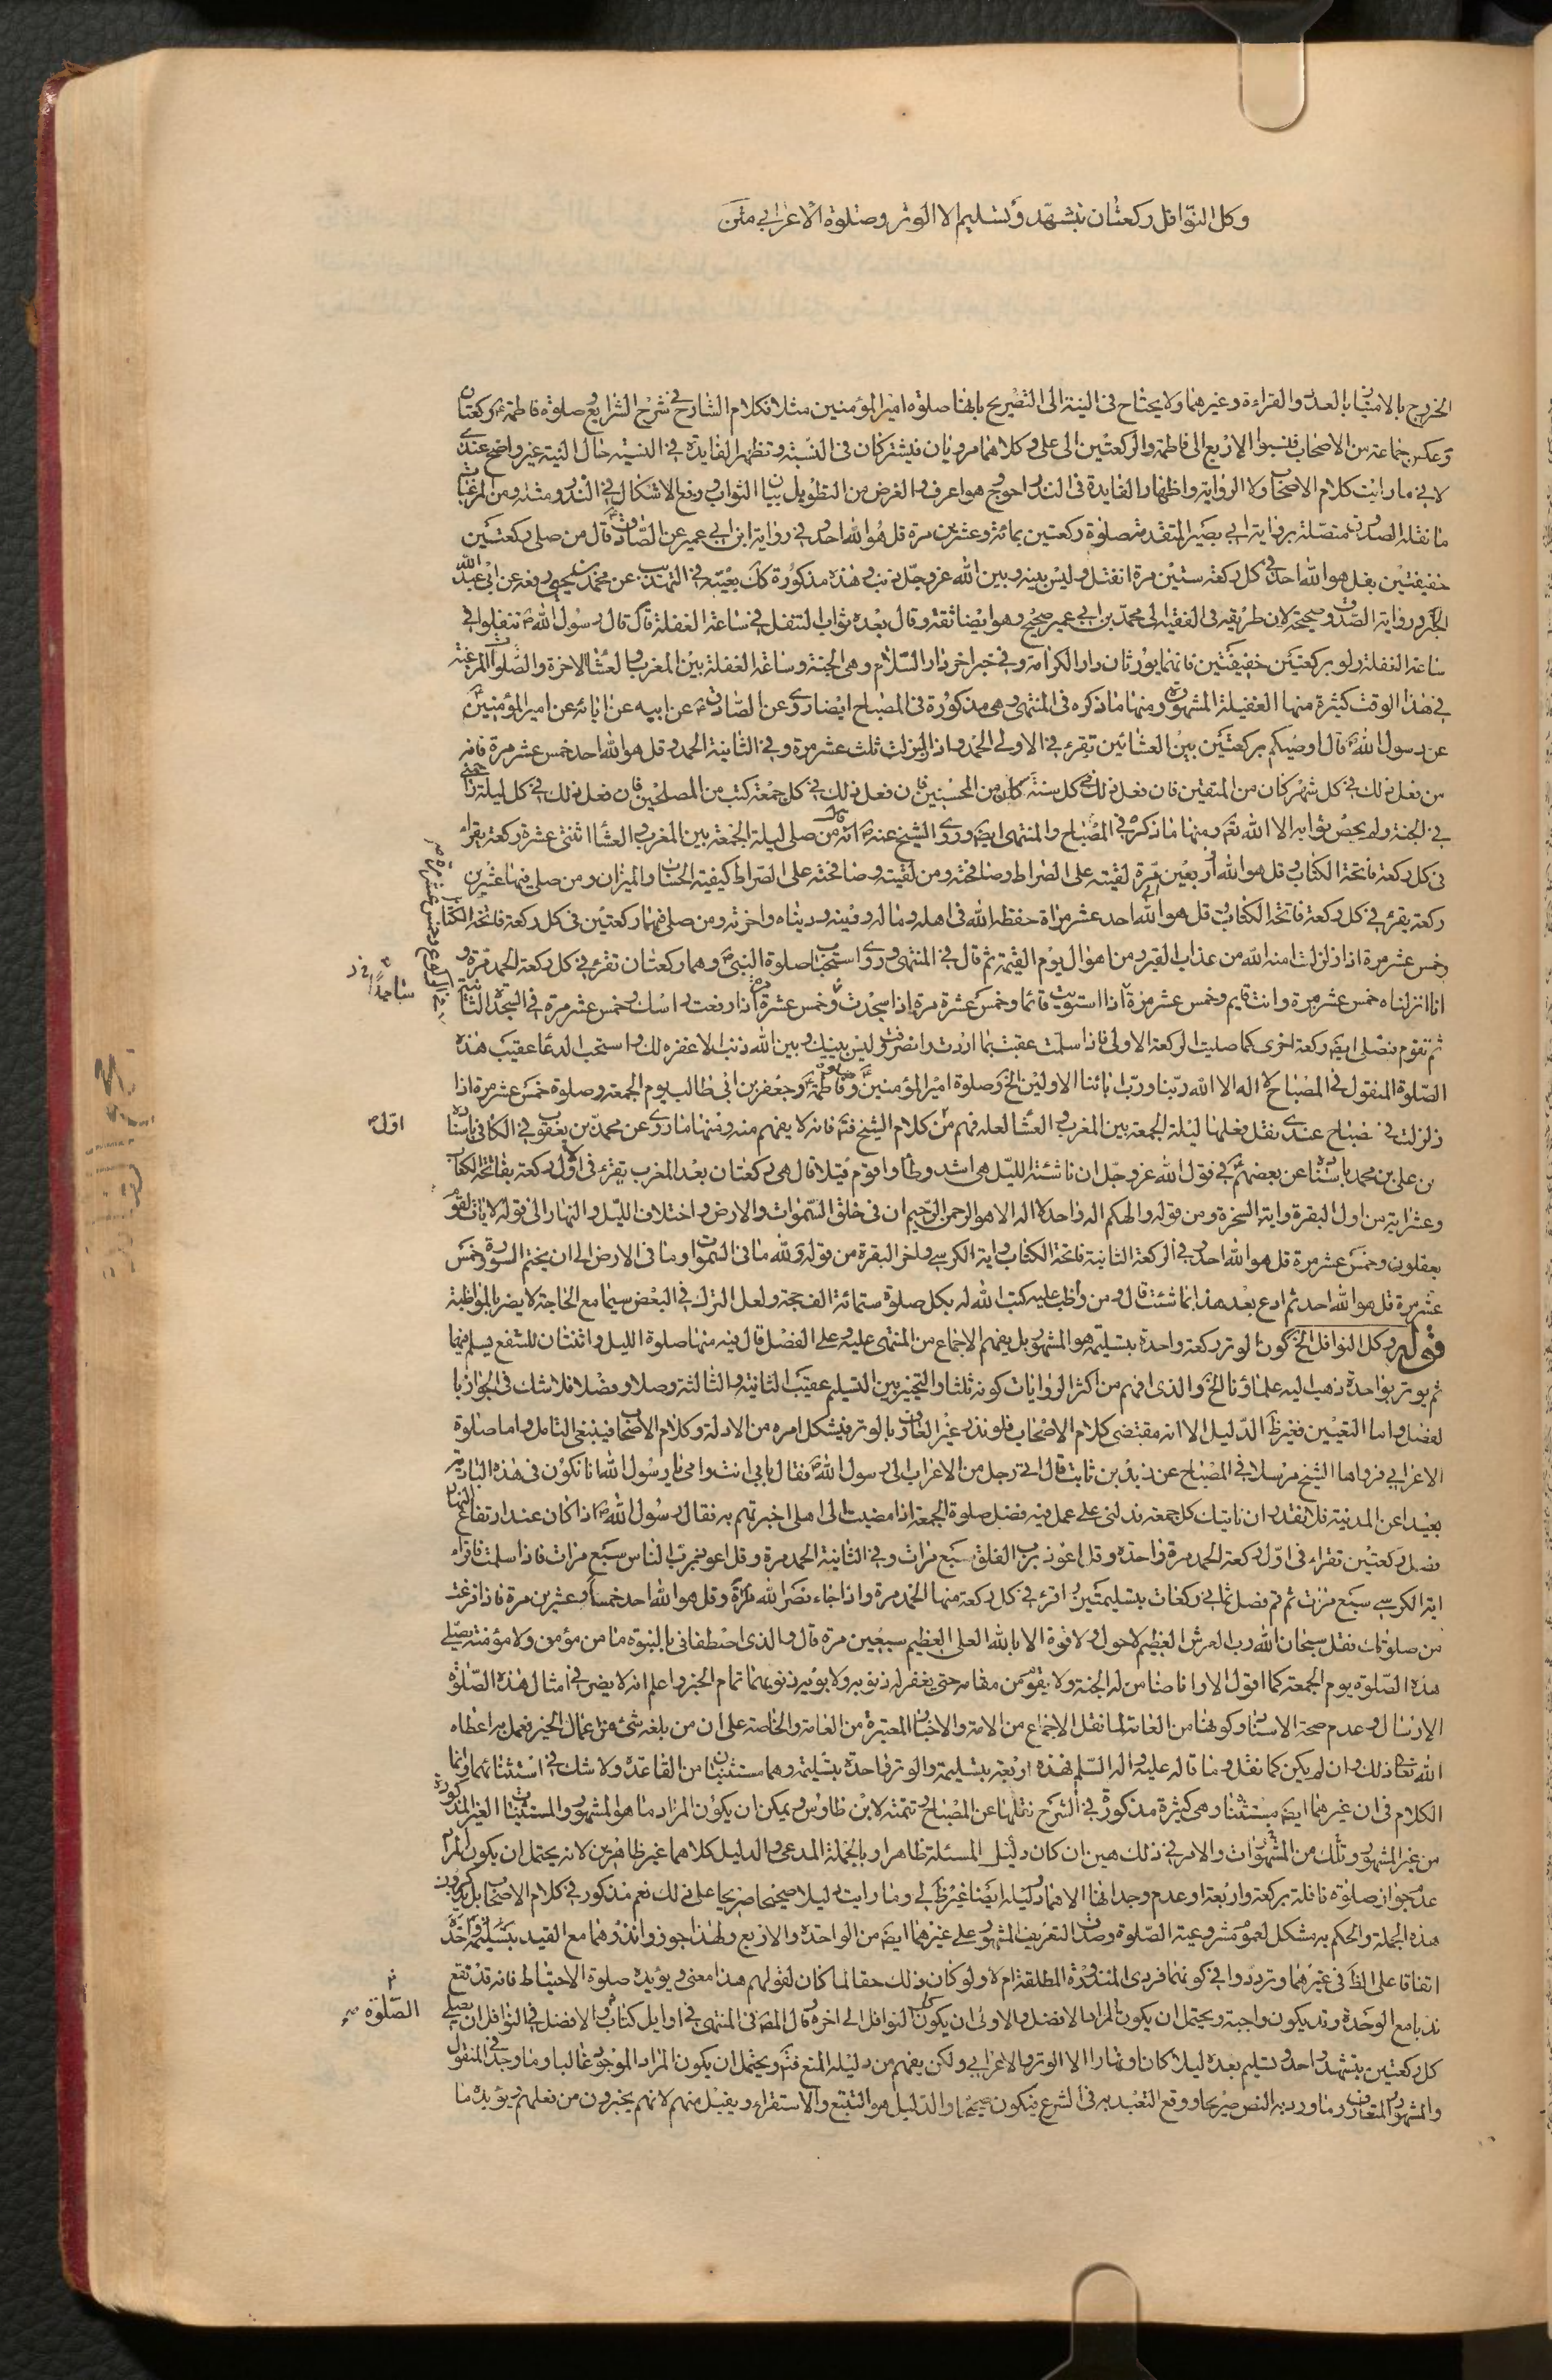 وكل النوافل ركعتان بتشهد وتسليم الا الوتر وصلوة الاعرابي متن
الخروج بالامتثال بالعدد والقراءة وغيرهما ولا يحتاج فى النية الى التصريح بانها صلوة امير المؤمنين مثلا فكلام الشارح فى شرح الشرايع وصلوة فاطمة ركعتان
وعكس جماعة من الاصحاب فنسبوا الاربع الى فاطمة والركعتين الى على وكلاهما مرويان فيشتركان فى النسبة وتظهر الفايدة فى النسبة حال النية غير واضح عندى
لانى ما رايت كلام الاصحاب ولا الرواية واظهار الفايدة فى النذر احوج هو اعرف والغرض من التطويل بيان الثواب ورفع الاشكال فى النذر ومثله ومن المرغبات
ما نقله الصدوق متصلة برواية ابى بصير المتقدمة صلوة ركعتين بمائة وعشرين مرة قل هو الله احد وفى رواية ابن ابى عمير عن الصادق قال من صلى ركعتين
خفيفتين بقل هو الله احد فى كل ركعة ستين مرة انفتل وليس بينه وبين الله عز وجل ذنب وهذه مذكورة كك بعينه فى التهذيب عن محمد بن يحيى رفعه عن ابى عبد الله
الخ ورواية الصدوق صحيحة لان طريقه فى الفقيه الى محمد بن ابى عمير صحيح وهو ايضا ثقة وقال بعده ثواب التنفل فى ساعة الغفلة قال قال رسول الله تنفلوا فى
ساعة الغفلة ولو بركعتين خفيفتين فانهما يورثان دار الكرامة وفى خبر اخر دار السلام وهى الجنة وساعة الغفلة بين المغرب والعشا الاخرة والصلوات المرغبة
فى هذا الوقت كثيرة منها الغفيلة المشهورة ومنها ما ذكره فى المنتهى وهى مذكورة فى المصباح ايضا روى عن الصادق عن ابيه عن ابائه عن امير المؤمنين
عن رسول الله قال اوصيكم بركعتين بين العشائين تقرء فى الاولى الحمد واذا زلزلت ثلث عشر مرة وفى الثانية الحمد وقل هو الله احد خمس عشر مرة فانه
من فعل ذلك فى كل شهر كان من المتقين فان فعل ذلك فى كل سنة كان من المحسنين فان فعل ذلك فى كل جمعة كتب من المصلحين فان فعل ذلك فى كل ليلة زاحمنى
فى الجنة ولم يحص ثوابه الا الله تعالى ومنها ما ذكره فى المصباح والمنتهى ايضا وروى الشيخ عنه انه قال من صلى ليلة الجمعة بين المغرب والعشا اثنتى عشرة ركعة يقرا
فى كل ركعة فاتحة الكتاب وقل هو الله اربعين مرة لقيته على الصراط وصافحته ومن لقيته وصافحته على الصراط كفيته الحساب والميزان ومن صلى فيها عشرين
ركعة يقرء فى كل ركعة فاتحة الكتاب وقل هو الله احد عشر مرات حفظه الله فى اهله وماله ودينه ودنياه واخرته ومن صلى فيها ركعتين فى كل ركعة فاتحة الكتاب
وخمس عشر مرة اذا زلزلت امنه الله من عذاب القبر ومن اهوال يوم القيمة ثم قال فى المنتهى وروى استحباب صلوة النبى وهما ركعتان تقرء فى كل ركعة الحمد مرة و
انا انزلناه خمس عشر مرة وانت قايم وخمس عشر مرة اذا استويت قائما وخمس عشرة مرة اذا سجدت وخمس عشرة اذا رفعت راسك وخمس عشر مرة فى السجدة الثانية
ثم تقوم فتصلى ايضا ركعة اخرى كما صليت الركعة الاولى فاذا سلمت عقبت بما اردت وانصرفت وليس بينك وبين الله ذنب الا غفره لك واستحب الدعا عقيب هذه
الصلوة المنقول فى المصباح لا اله الا الله ربنا ورب ابائنا الاولين الخ وصلوة امير المؤمنين وصلوة فاطمة وجعفر بن ابى طالب يوم الجمعة وصلوة خمس عشر مرة اذا
زلزلت فى مصباح عندى نقل فعلها ليلة الجمعة بين المغرب والعشا لعله فهم من كلام الشيخ فتم فانه لا يفهم منه ومنها ما روى عن محمد بن يعقوب فى الكافى باسناده
عن على بن محمد باسناده عن بعضهم فى قول الله عز وجل ان ناشئة الليل هى اشد وطأ واقوم قيلا قال هى ركعتان بعد المغرب يقرء فى اول ركعة بفاتحة الكتاب
وعشر اية من اول البقرة واية السخرة ومن قوله والهكم اله واحد لا اله الا هو الرحمن الرحيم ان فى خلق السموات والارض واختلاف الليل والنهار الى قوله لايات لقوم
يعقلون وخمس عشر مرة قل هو الله احد وفى الركعة الثانية فاتحة الكتاب واية الكرسى واخر البقرة من قوله لله ما فى السموات وما فى الارض الى ان يختم السورة وخمس
عشر مرة قل هو الله احد ثم ادع بعد هذا بما شئت قال ومن واظب عليه كتب الله له بكل صلوة ستمائة الف حجة ولعل الترك فى البعض سيما مع الحاجة لا يضر بالمواظبة
قوله وكل النوافل الخ كون الوتر ركعة واحدة بتسليمة هو المشهور بل يفهم الاجماع من المنتهى عليه وعلى الفضل قال فيه منها صلوة الليل واثنتان للشفع يسلم فيهما
ثم يوتر بواحدة ذهب اليه علماؤنا الخ والذى افهم من اكثر الروايات كونه ثلثا والتخيير بين التسليم عقيب الثانية والثالثة وصلا وفضلا فلا شك فى الجواز با
لفضل واما التعيين فغير ظ الدليل الا انه مقتضى كلام الاصحاب فلو نذر غير العارف بالوتر فيشكل امره من الادلة وكلام الاصحاب فينبغى التامل واما صلوة
الاعرابى فرواها الشيخ مرسلا فى المصباح عن زيد بن ثابت قال اتى رجل من الاعراب الى رسول الله فقال بابى انت وامى يا رسول الله انا نكون فى هذه البادية
بعيدا عن المدينة فلا نقدر ان ناتيك كل جمعة فدلنى على عمل فيه فضل صلوة الجمعة اذا مضيت الى اهلى اخبرتهم به فقال رسول الله اذا كان عند ارتفاع النهار
فصل ركعتين تقراء فى اول ركعة الحمد مرة واحدة وقل اعوذ برب الفلق سبع مرات وفى الثانية الحمد مرة وقل اعوذ برب الناس سبع مرات فاذا سلمت فاقراء
اية الكرسى سبع مرات ثم قم فصل ثمانى ركعات بتسليمتين واقرء فى كل ركعة منها الحمد مرة واذا جاء نصر الله مرة وقل هو الله احد خمسا وعشرين مرة فاذا فرغت
من صلوتك فقل سبحان الله رب العرش العظيم لا حول ولا قوة الا بالله العلى العظيم سبعين مرة قال والذى اصطفانى بالنبوة ما من مؤمن ولا مؤمنة يصلى
هذه الصلوة يوم الجمعة كما اقول الا وانا ضامن له الجنة ولا يقوم من مقامه حتى يغفر له ذنوبه ولابويه ذنوبهما تمام الخبر واعلم انه لا يضر فى امثال هذه الصلوة
الارسال وعدم صحة الاسناد وكونها من العامة لما نقل الاجماع من الامة والاخبار المعتبرة من العامة والخاصة على ان من بلغه شئ من اعمال الخير فعمل به اعطاه
الله تعالى ذلك وان لم يكن كما نقل وما قاله عليه واله السلم فهذه اربعة بتسليمة والوتر واحدة بتسليمة وهما مستثنيان من القاعدة ولا شك فى استثنائهما وانما
الكلام فى ان غيرهما ايضا مستثنا وهى كثيرة مذكورة فى الشرح نقلها عن المصباح وتتمته لابن طاوس ويمكن ان يكون المراد ما هو المشهور والمستثنيات الغير المذكورة
من غير المشهور وتلك من المشهورات والامر فى ذلك هين ان كان دليل المسئلة ظاهرا وبالجملة المدعى والدليل كلاهما غير ظاهرين لانه يحتمل ان يكون المراد
عدم جواز صلوة نافلة بركعة واربعة وعدم وجدانها الا هما دليله ايضا غير ظ لى وما رايت دليلا صحيحا صريحا على ذلك نعم مذكور فى كلام الاصحاب بل يذكرون
هذه الجملة والحكم به مشكل لعموم مشروعية الصلوة وصدق التعريف المشهور على غيرهما ايضا من الواحدة والاربع ولهذا جوزوا نذرهما مع القيد بتسليمة واحدة
اتفاقا على الظ فى غيرهما وترددوا فى كونهما فردى المنذورة المطلقة ام لا ولو كان ذلك حقا لما كان لقولهم هذا معنى ويؤيده صلوة الاحتياط فانه قد تقع
ندبا مع الوحدة وقد يكون واجبة ويحتمل ان يكون المراد الافضل والاولى ان يكون كل النوافل الى اخره قال المص فى المنتهى فى اوايل كتاب الصلوة والافضل فى النوافل ان يصلى
كل ركعتين بتشهد واحد وتسليم بعده ليلا كان او نهارا الا الوتر والاعرابى ولكن يفهم من دليله المنع فتم ويحتمل ان يكون المراد الموجود غالبا وما وجد فى المنقول
والمشهور المتعارف وما ورد به النص صريحا ووقع التعبد به فى الشرع فيكون صحيحا والدليل هو التتبع والاستقراء ويقبل منهم لانهم يخبرون من فعلهم ويؤيده ما
اقول
الصلوة